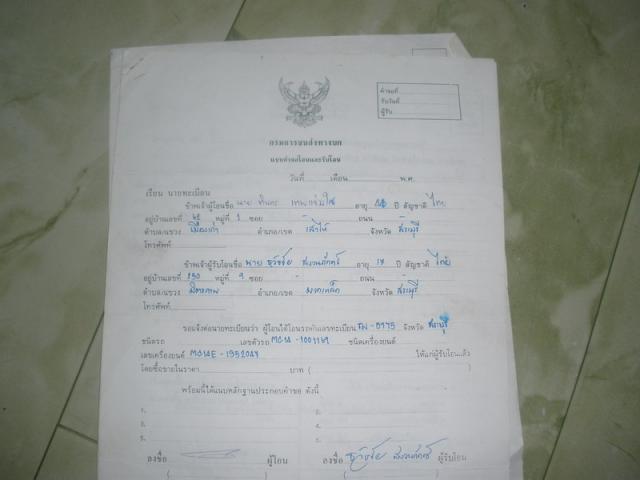 คำขอที่
รับวันที่
ผู้รับ
กรมการขนส่งทางบก
แบบคำขอโอนและรับโอน
วันที่ เดือน พ.ศ.
เรียน นายทะเบียน
ข้าพเจ้าผู้โอนชื่อ นาย อายุ ปี สัญชาติ ไทย
อยู่บ้านเลขที่ หมู่ที่ 1 ซอย - ถนน -
ตำบล/แขวง เมืองเก่า อำเภอ/เขต เสาไห้ จังหวัด สระบุรี
โทรศัพท์
ข้าพเจ้าผู้รับโอนชื่อ นาย ธวัชชัย สงวนศักดิ์ อายุ ปี สัญชาติ ไทย
อยู่บ้านเลขที่ 250 หมู่ที่ 9 ซอย - ถนน -
ตำบล/แขวง มิตรภาพ อำเภอ/เขต มวกเหล็ก จังหวัด สระบุรี
โทรศัพท์
ขอแจ้งต่อนายทะเบียนว่า ผู้โอนได้โอนรถคันเลขทะเบียน จังหวัด สระบุรี
ชนิดรถ เลขตัวรถ ชนิดเครื่องยนต์
เลขเครื่องยนต์ ให้แก่ผู้รับโอนแล้ว
โดยซื้อขายในราคา บาท ( )
พร้อมนี้ได้แนบหลักฐานประกอบคำขอ ดังนี้
1.
2.
3.
ลงชื่อ ผู้โอน ลงชื่อ ธวัชชัย สงวนศักดิ์ ผู้รับโอน